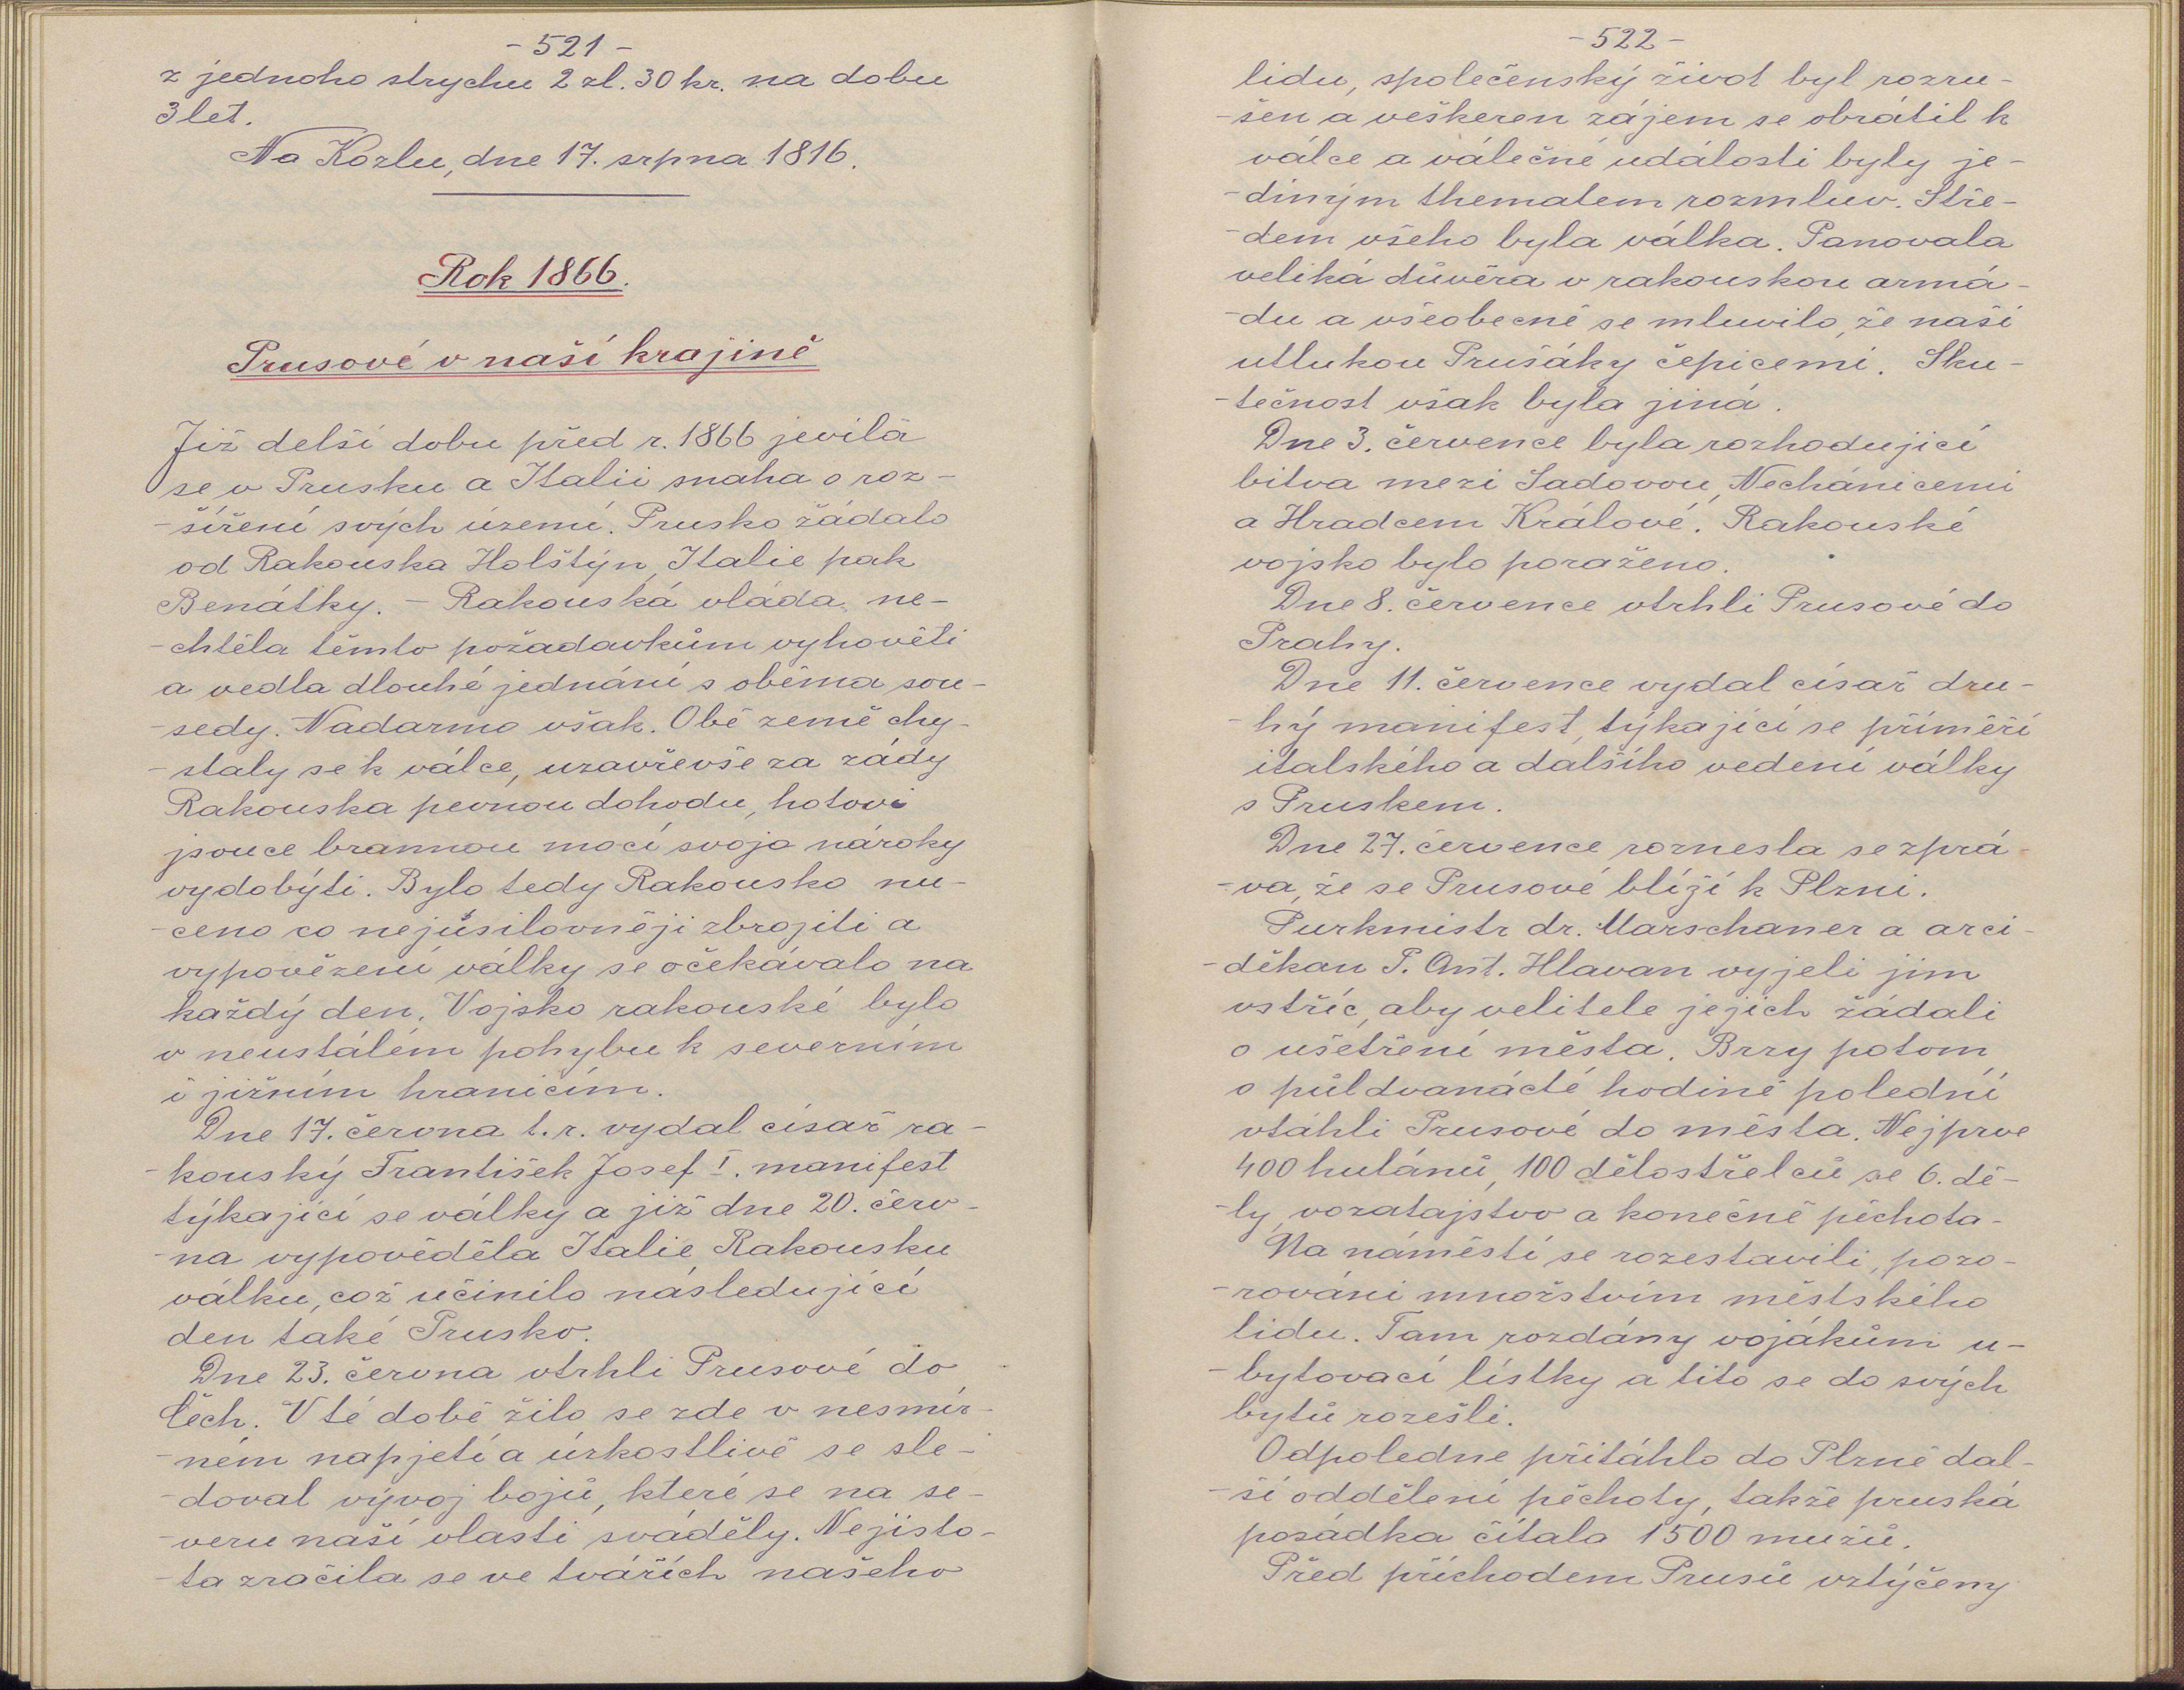 - 521 -
z jednoho strychu 2 zl. 30 kr. na dobu
3 let.
Na Kozlu, dne 17. srpna 1816.
Rok 1866.
Prusové v naší krajině
Již delší dobu před r. 1866 jevila
se v Prusku a Italii snaha o roz-
-šíření svých území. Prusko žádalo
od Rakouska Holštýn, Italie pak
Benátky. - Rakouská vláda ne-
-chtěla těmto požadavkům vyhověti
a vedla dlouhé jednání s oběma sou-
-sedy. Nadarmo však. Obě země chy-
-staly se k válce, uzavřevše za zády
Rakouska pevnou dohodu, hotovi
jsouce brannou mocí svoja nároky
vydobýti. Bylo tedy Rakousko nu-
-ceno co nejúsilovněji zbrojiti a
vypovězení války se očekávalo na
každý den. Vojsko rakouské bylo
v neustálém pohybu k severním
i jižním hranicím.
Dne 17. června t. r. vydal císař ra-
-kouský František Josef I. manifest
týkající se války a již dne 20. červ-
-na vypověděla Italie Rakousku
válku, což učinilo následující
den také Prusko.
Dne 23. června vtrhli Prusové do
Čech. V té době žilo se zde v nesmír-
-ném napjetí a úzkostlivě se sle-
-doval vývoj bojů, které se na se-
-veru naší vlasti sváděly. Nejisto-
-ta zračila se ve tvářích našeho
- 522 -
lidu, společenský život byl rozru-
-šen a veškeren zájem se obrátil k
válce a válečné události byly je-
-diným thematem rozmluv. Stře-
-dem všeho byla válka. Panovala
veliká důvěra v rakouskou armá-
-du a všeobecně se mluvilo, že naši
utlukou Prušáky čepicemi. Sku-
-tečnost však byla jiná.
Dne 3. července byla rozhodující
bitva mezi Sadovou, Nechánicemi
a Hradcem Králové. Rakouské
vojsko bylo poraženo.
Dne 8. července vtrhli Prusové do
Prahy.
Dne 11. července vydal císař dru-
-hý manifest, týkající se příměří
italského a dalšího vedení války
s Pruskem.
Dne 27. července roznesla se zprá-
-va, že se Prusové blíží k Plzni.
Purkmistr dr. Marschaner a arci-
-děkan P. Ant. Hlavan vyjeli jim
vstříc, aby velitele jejich žádali
o ušetření města. Brzy potom
o půl dvanácté hodině polední
vtáhli Prusové do města. Nejprve
400 hulánů, 100 dělostřelců se 6. dě-
-ly, vozatajstvo a konečně pěchota-
Na náměstí se rozestavili, pozo-
-rováni množstvím městského
lidu. Tam rozdány vojákům u-
-bytovací lístky a tito se do svých
bytů rozešli.
Odpoledne přitáhlo do Plzně dal-
-ší oddělení pěchoty, takže pruská
posádka čítala 1500 mužů.
Před příchodem Prusů vztýčeny